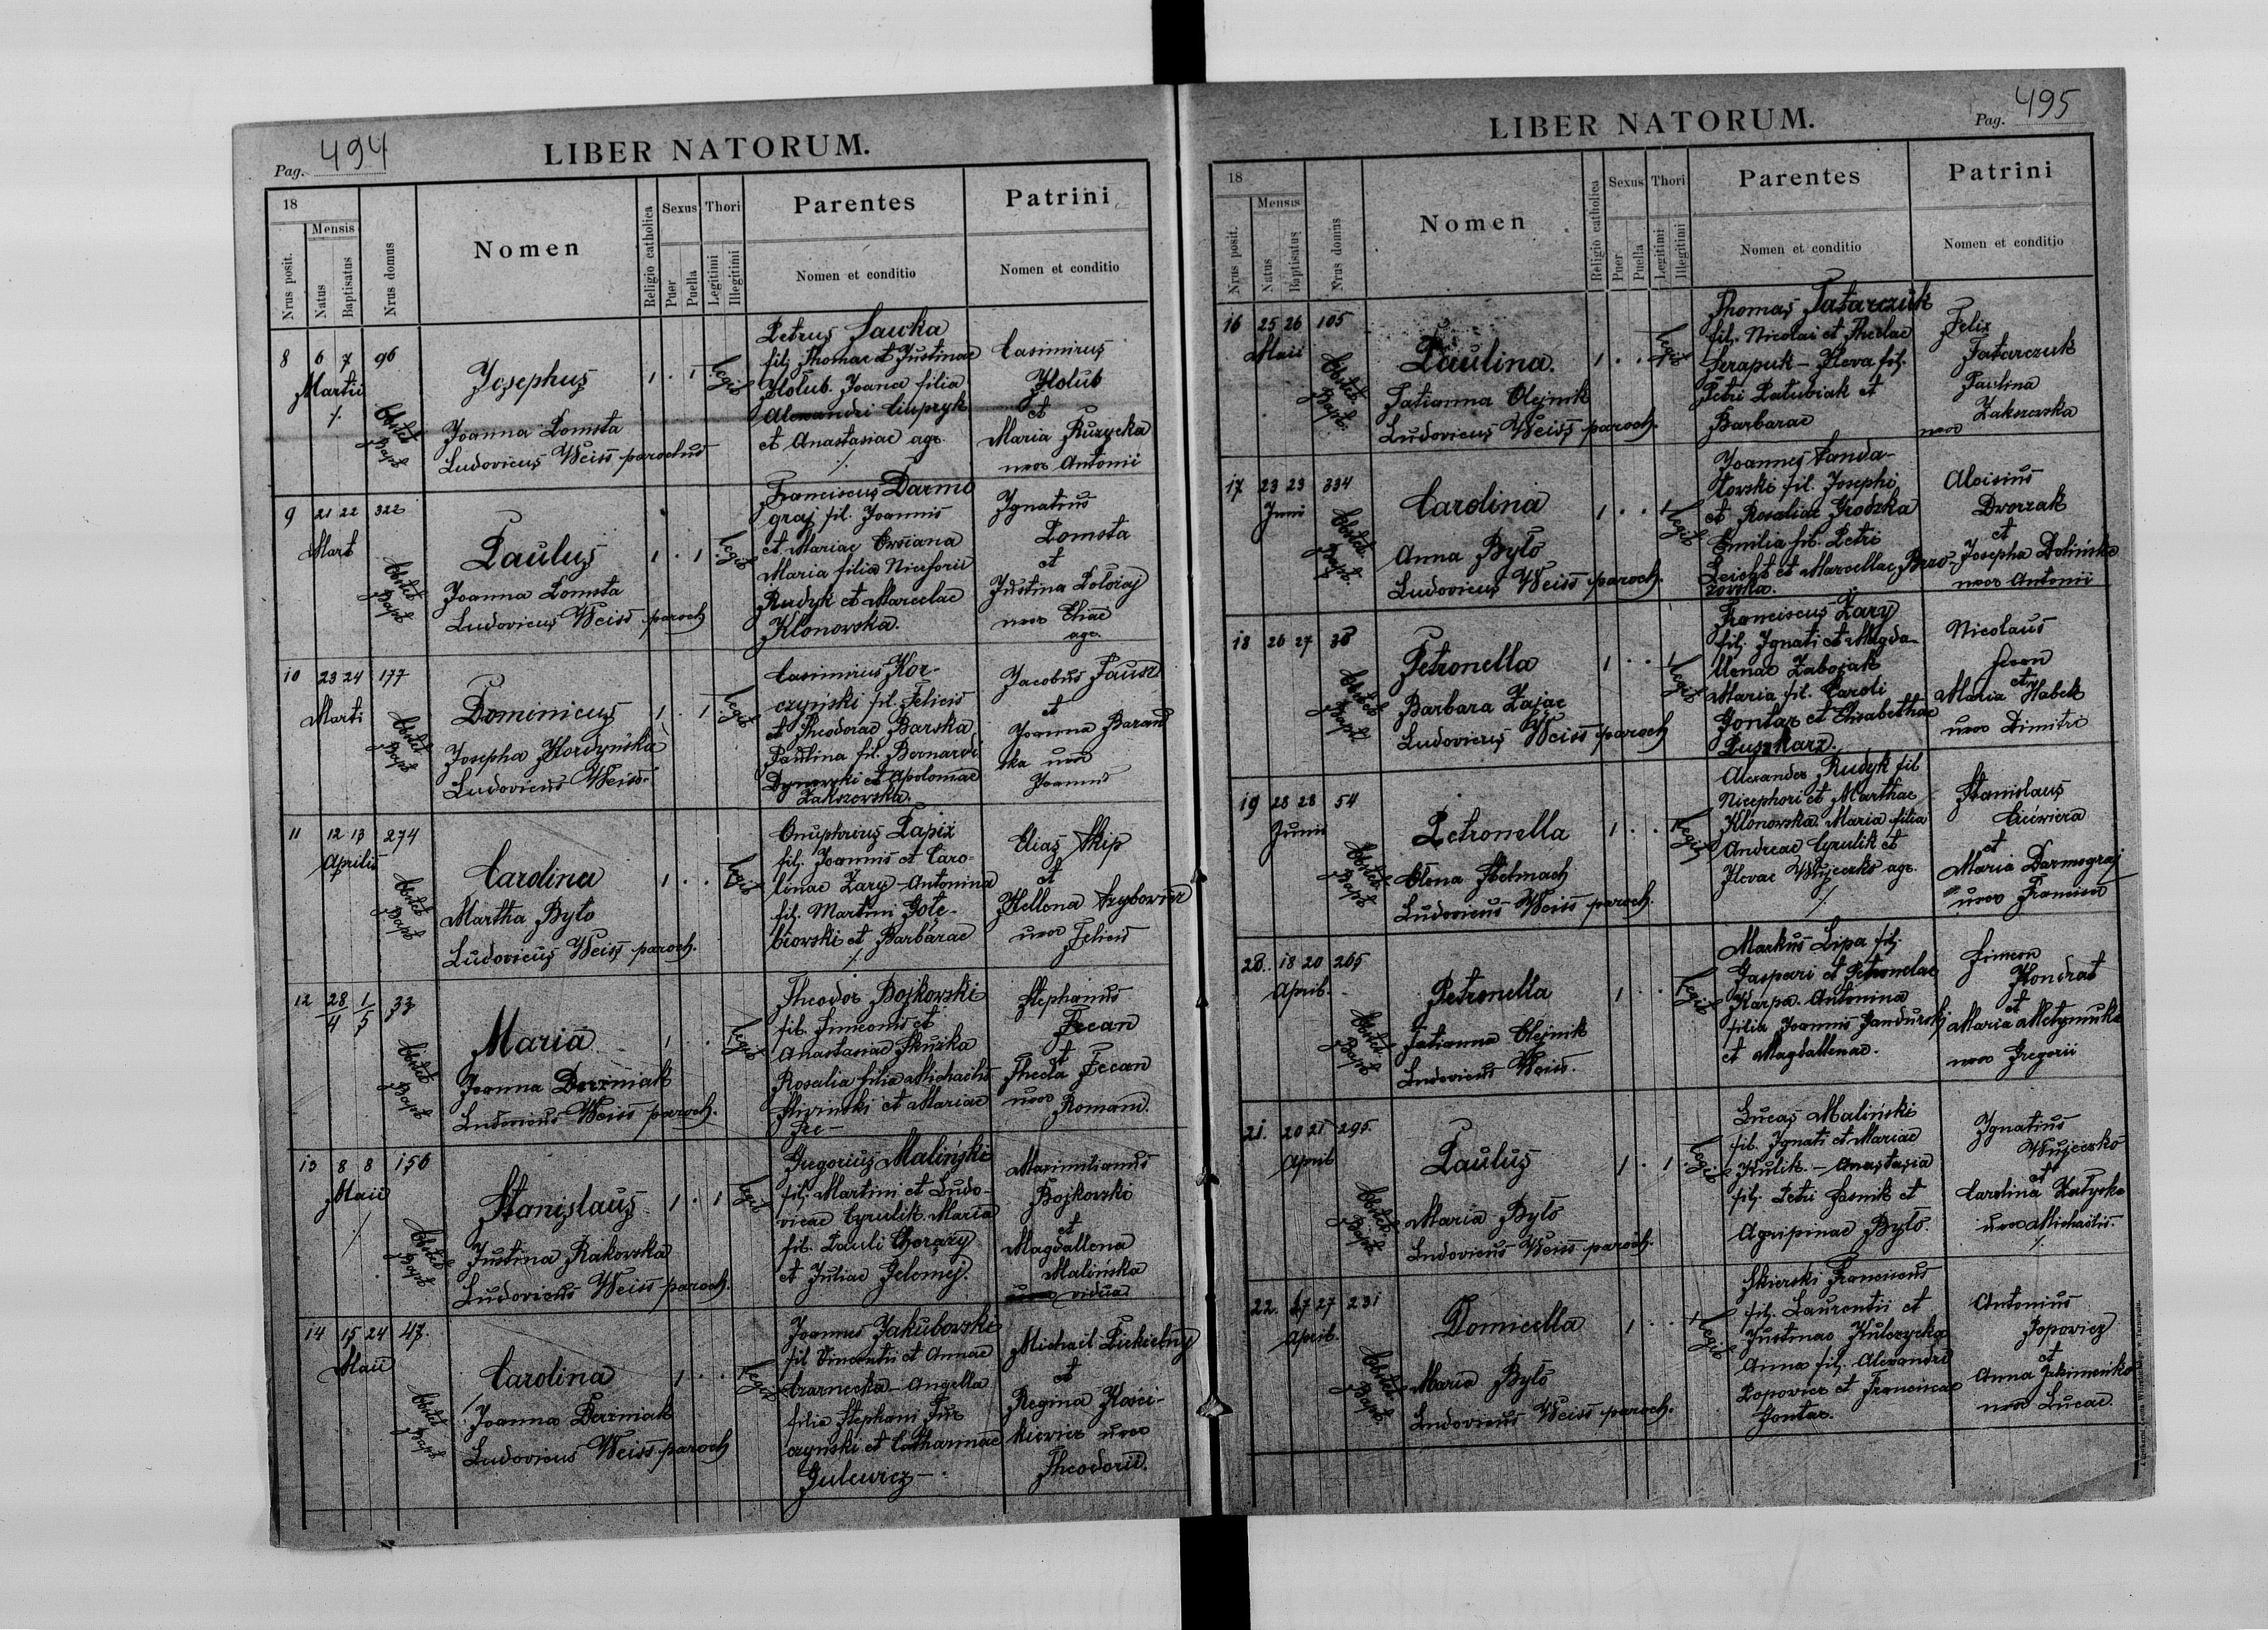 Pag. 494
LIBER NATORUM.
18
Nrus posit.
Mensis
Natus
Baptisatus
Nrus domus
Nomen
Religio catholica
Sexus
Puer
Puella
Thori
Legitimi
Illegitimi
Parentes
Nomen et conditio
Patrini
Nomen et conditio
8 6 7 96
Martii
Josephus
1 . 1 Legit
Obstet
Bapt
Joanna Lomsta
Ludovicus Weiss parochus
Petrus Sawka
fil. Thomae et Justinae
Holub. Joanna filia
Alexandri
et Anastasiae agr.
Casimirus
Holub
et
Maria Ruzycka
uxor Antonii
9 21 22 322
Mart
Paulus
1 . 1 Legit
Obstet
Bapt
Joanna Lomsta
Ludovicus Weiss paroch
Franciscus Darmo
graj fil. Joannis
et Mariae
Maria filia Niceforii
Rudyk et Marcelae
Klonovska.
Ignatius
Lomsta
et
Justina
uxor Eliae
agr.
10 23 24 177
Marti
Dominicus
1 . 1 Legit
Obstet
Bapt
Josepha Hordyńska
Ludovicus Weiss
Casimirus Kor-
czyński fil. Felicis
et Theodorae Barska
Paulina fil. Bernardi
et Apoloniae
Zakszevska.
Jacobus
et
Joanna Barand
ska uxor
Joannis
11 12 13 274
Aprilis
Carolina
1 . . 1 Legit
Obstet
Bapt
Martha Było
Ludovicus Weiss paroch.
Onuphrius Papix
fil. Joannis et Caro-
linae Zary - Antonina
fil. Martini Gołę-
biovski et Barbarae
Elias Skip
et
Hellena
uxor Felicis
12 28/4 1/5 33
Maria
1 . Legit
Obstet
Bapt
Joanna Derziniak
Ludovicus Weiss paroch.
Theodor Bojkovski
fil. Simeonis et
Anastasiae
Rosalia filia Michaelis
et Mariae
Stephanus
Fecan
et
Thecla Fecan
uxor
Romani.
13 8 8 156
Maii
Stanislaus
1 . 1 Legit
Obstet
Bapt
Justina Rakovska
Ludovicus Weiss paroch.
Gregorius Maliński
fil. Martini et Ludo-
vicae Cyrulik. Maria
fil. Pauli Chorąży
et Juliae
Maximilianus
Bojkovski
et
Magdallena
Malińska
vidua
14 15 24 47.
Maii
Carolina
1 . . Legit
Obstet
Bapt
Joanna Derziniak
Ludovicus Weiss paroch
Joannes Jakubovski
fil Vincentii et Annae
Czarnecka - Angella
filia Stephani Jur
czynski et Catharinae
Michail
et
Regina Kości-
kiewicz uxor
Theodorii.
LIBER NATORUM.
Pag. 495
18
Nrus posit.
Mensis
Natus
Baptisatus
Nrus domus
Nomen
Religio catholica
Sexus
Puer
Puella
Thori
Legitimi
Illegitimi
Parentes
Nomen et conditio
Patrini
Nomen et conditio
16 25 26 105
Maii
Paulina.
1 . . Legit
Obstet
Bapt.
Tatianna Olejnik
Ludovicus Weiss paroch.
Thomas Tatarczuk
fil. Nicolai et Theclae
Serapuk - Heva fil.
Petri et
Barbarae
Felix
Tatarczuk
Paulina
Zakszevska
uxor
17 23 23 334
Juni
Carolina
1 . . 1 Legit
Obstet
Bapt.
Anna Było
Ludovicus Weiss paroch.
Joannes
fil. Josephi
et Rosaliae Grodzka
Emilia fil. Petri
Leicht et Marcellae Brzo-
zovska.
Aloisius
Dworzak
et
Josepha Dolińska
uxor Antonii
18 26 27 38
Petronella
1 . . 1 Legit
Obstet
Bapt
Barbara Zając
Ludovicus Weiss paroch
Franciscus Zary
fil. Ignati et Magda-
llenae
Maria fil. Caroli
Gontar et Elisabethae
Puszkarz.
Nicolaus
et
Maria Habek
uxor Dimitri
19 28 28 54
Junii
Petronella
1 . . 1 Legit
Obstet
Bapt
Olena Stelmach
Ludovicus Weiss paroch.
Alexander Rudyk fil
Nicephori et Marthae
Klonovska. Maria filia
Andreae Cyrulik et
Hevae Wujeczko agr.
Stanislaus
et
Maria Darmograj
uxor Francisci
20. 18 20 265
April.
Petronella
1 . . Legit
Obstet
Bapt
Tatianna Olejnik
Ludovicus Weiss.
Markus Lipa fil.
Gaspari et Petronelae
Karpa. Antonina
filia Joannis
et Magdallenae.
Simeon
Kondrat
et
Maria
uxor Gregorii
21. 20 21 295.
April
Paulus
1 . 1 Legit
Obstet
Bapt
Maria Było
Ludovicus Weiss paroch.
Lucas Maliński
fil. Ignati et Mariae
Kulik. - Anastasia
fil. Petri et
Agripinae Było.
Ignatius
Wujeczko
et
Carolina
uxor Michaelis.
22. 27 27 231
April.
Domicella
1 . . 1 Legit
Obstet
Bapt.
Maria Było
Ludovicus Weiss paroch.
Skierski Franciscus
fil. Laurentii et
Justinae Kulczycka
Anna fil. Alexandri
Popovicz et Franciscae
Gontar.
Antonius
Popovicz
et
Anna
uxor Lucae.